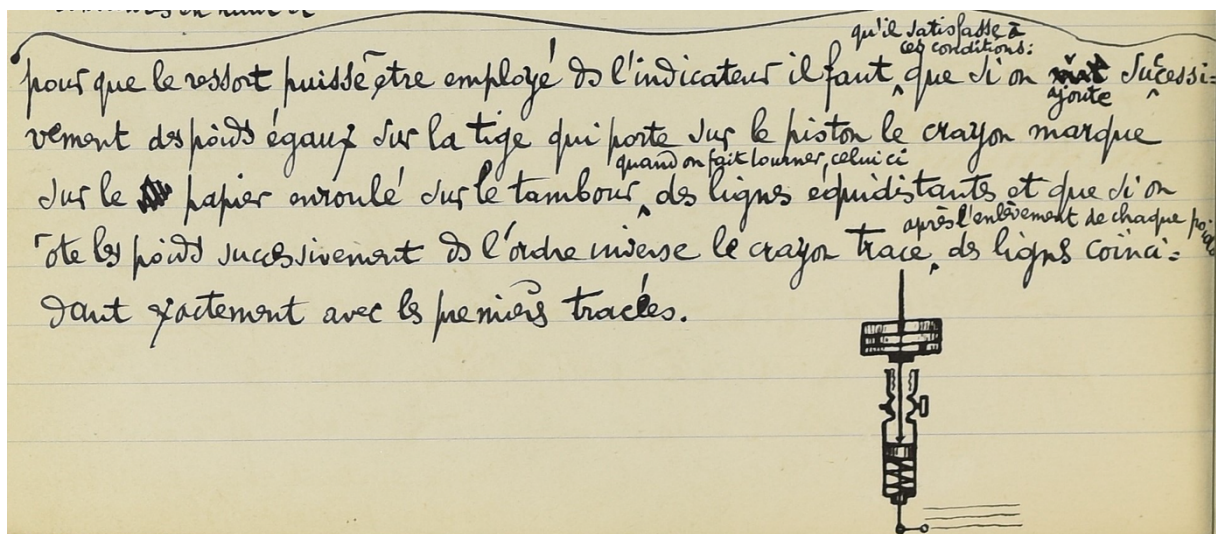 pour que le ressort puisse être employé ds l'indicateur il faut qu'il satisfasse à ces conditions: que si on ajoute successi=
vement des poids égaux sur la tige qui porte sur le piston le crayon marque
sur le papier enroulé sur le tambour, quand on fait tourner celui ci des lignes équidistantes et que si on
ôte les poids successivement ds l'ordre inverse le crayon trace, après l'enlèvement de chaque poids des lignes coïnci=
dant exactement avec les premiers tracées.